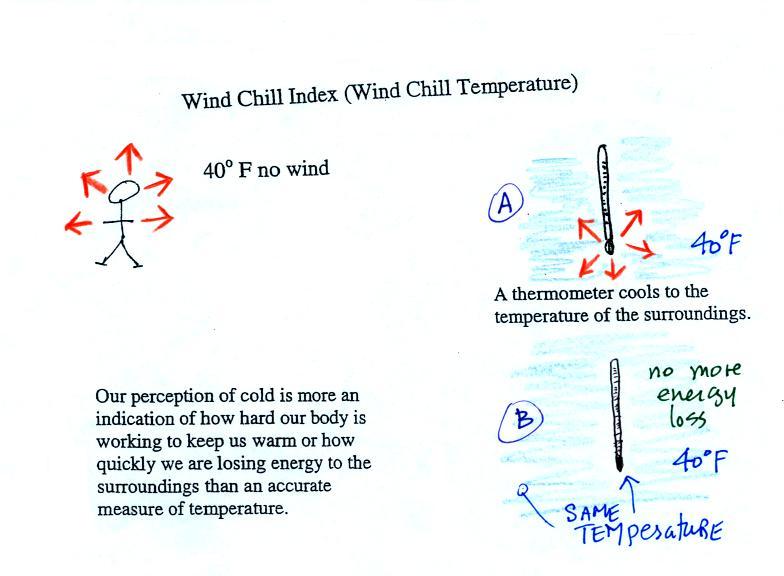 Wind Chill Index (Wind Chill Temperature)
40° F no wind
A
40°F
A thermometer cools to the
temperature of the surroundings.
Our perception of cold is more an
indication of how hard our body is
working to keep us warm or how
quickly we are losing energy to the
surroundings than an accurate
measure of temperature.
B
no more
energy
loss
40°F
SAME
TEMPeratURE